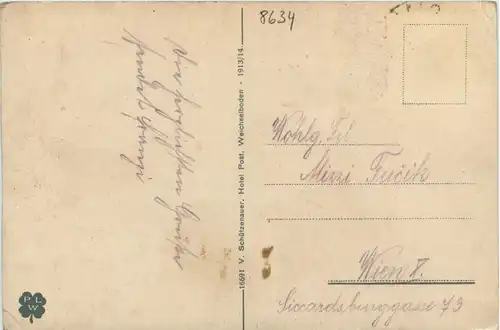 8634
Die herzlichsten Grüße
sendet
16691 V. Schützenauer, Hotel Post, Weichselboden - 1913/14
Wohlg. Frl
Mizi Fučik
Wien 8.
Siccardsburggasse 73
P L W